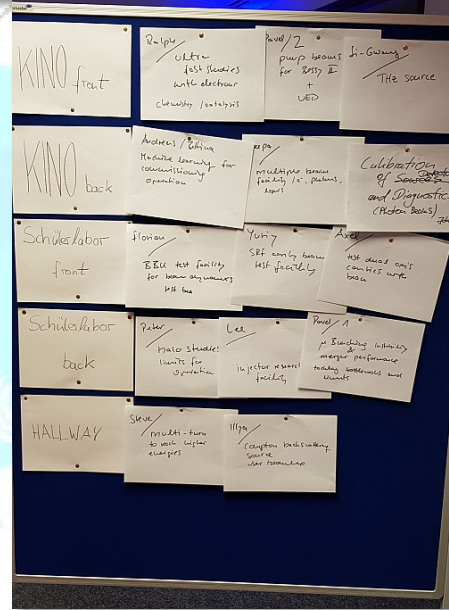 KINO front
Ralph /
ultra
fast studies
with electron
chemistry / catalysis
Pavel / 2
pump beams
for Bessy II
+
UED
Ji-Gwang
THz source
KINO
back
Andreas /
Machine learning for
commissioning
operation
multiple beam
facility / e-, photons,
Calibration
of Sources Detectors
and Diagnostic
(Photon Beams)
Schülerlabor
front
Florian
BBU test facility
for beam dynamics
Yuriy
SRF cavity beam
test facility
Axel
test dual axis
cavities with
beam
Schülerlabor
back
Peter
Halo studies
limits for
operation
Lee
injector research
facility
Pavel / 1
µ Bunching instability
&
merger performance
today bottlenecks and
limits
HALLWAY
Steve
multi-turn
to reach higher
energies
Illya
compton backscattering
source
user beamline